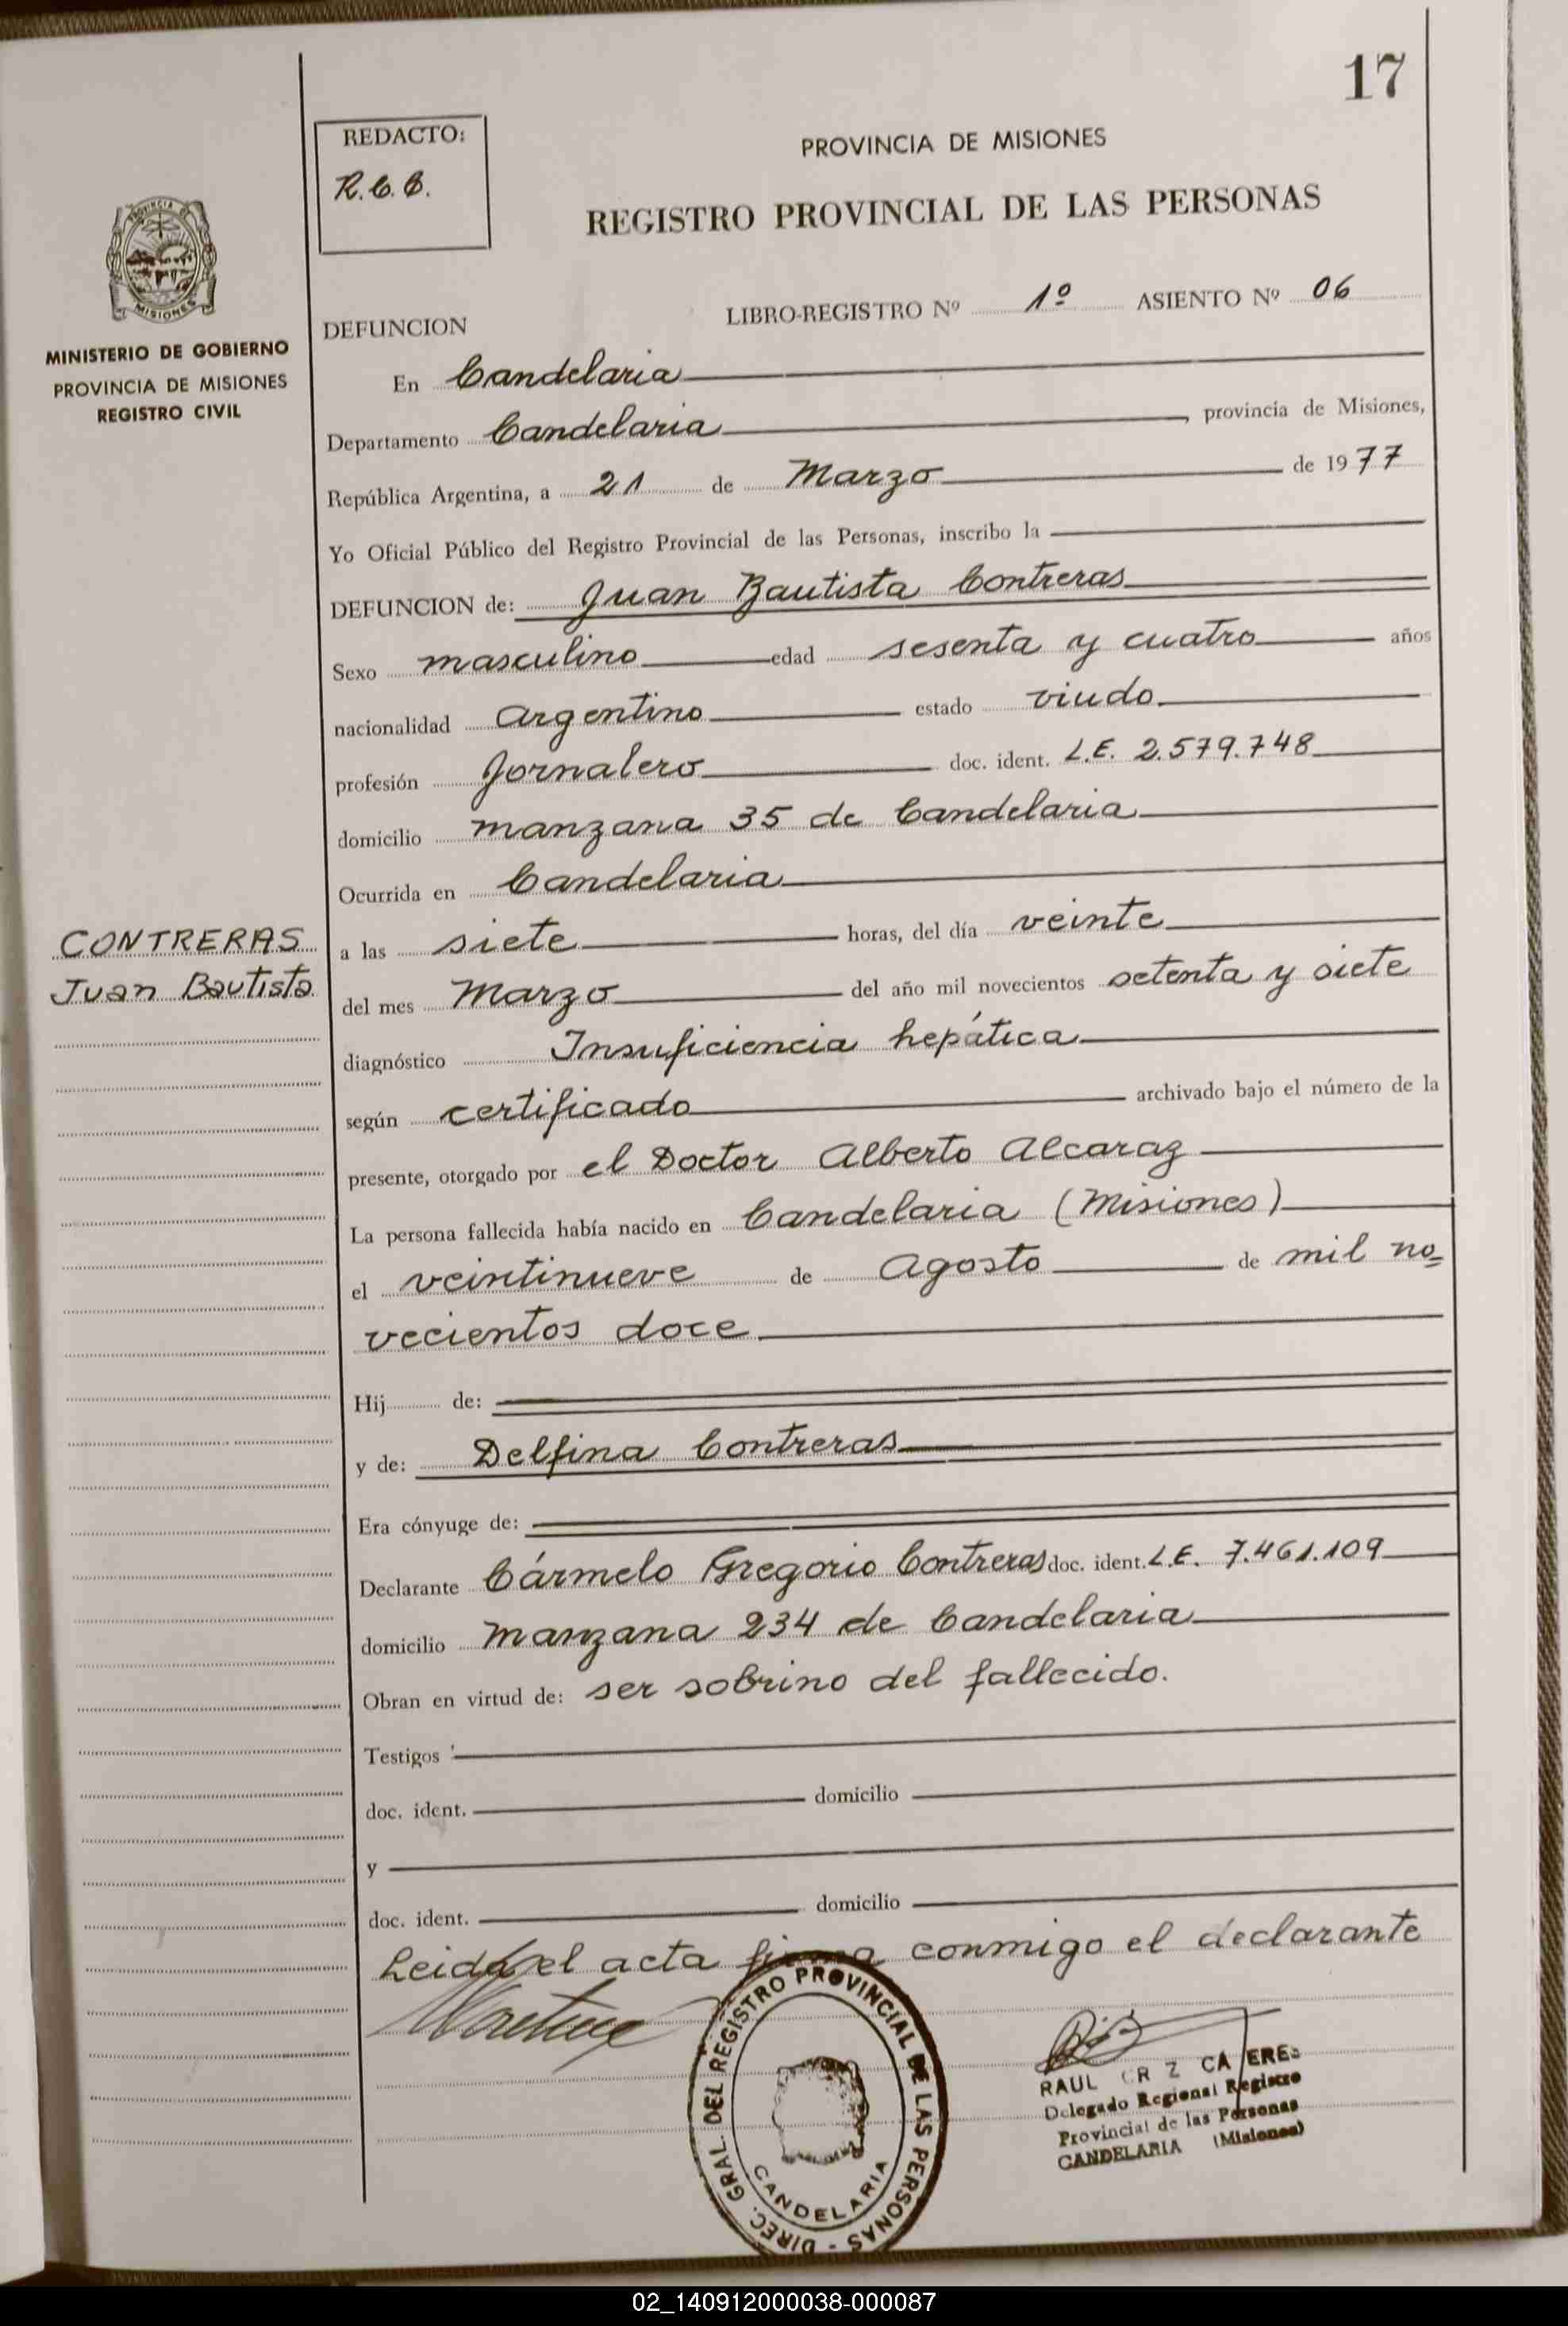 17
REDACTO:
R.C.C.
PROVINCIA DE MISIONES
REGISTRO PROVINCIAL DE LAS PERSONAS
PROVINCIA DE
MISIONES
MINISTERIO DE GOBIERNO
PROVINCIA DE MISIONES
REGISTRO CIVIL
LIBRO-REGISTRO Nº 1º ASIENTO Nº 06
DEFUNCION
En Candelaria
Departamento Candelaria, provincia de Misiones,
República Argentina, a 21 de Marzo de 1977
Yo Oficial Público del Registro Provincial de las Personas, inscribo la
DEFUNCION de: Juan Bautista Contreras
Sexo masculino edad sesenta y cuatro años
nacionalidad Argentino estado viudo
profesión Jornalero doc. ident. L.E. 2.579.748
domicilio manzana 35 de Candelaria
Ocurrida en Candelaria
CONTRERAS
Juan Bautista
a las siete horas, del día veinte
del mes Marzo del año mil novecientos setenta y siete
diagnóstico Insuficiencia hepática
según certificado archivado bajo el número de la
presente, otorgado por el Doctor Alberto Alcaraz
La persona fallecida había nacido en Candelaria (Misiones)
el veintinueve de Agosto de mil no=
vecientos doce
Hij de:
y de: Delfina Contreras
Era cónyuge de:
Declarante Cármelo Gregorio Contreras doc. ident. L.E. 7.461.109
domicilio manzana 234 de Candelaria
Obran en virtud de: ser sobrino del fallecido.
Testigos
doc. ident. domicilio
y
doc. ident. domicilio
Leida el acta firma conmigo el declarante
DIREC. GRAL. DEL REGISTRO PROVINCIAL DE LAS PERSONAS -
CANDELARIA
RAUL CR Z CA ERES
Delegado Regional Registro
Provincial de las Personas
CANDELARIA (Misiones)
02_140912000038-000087